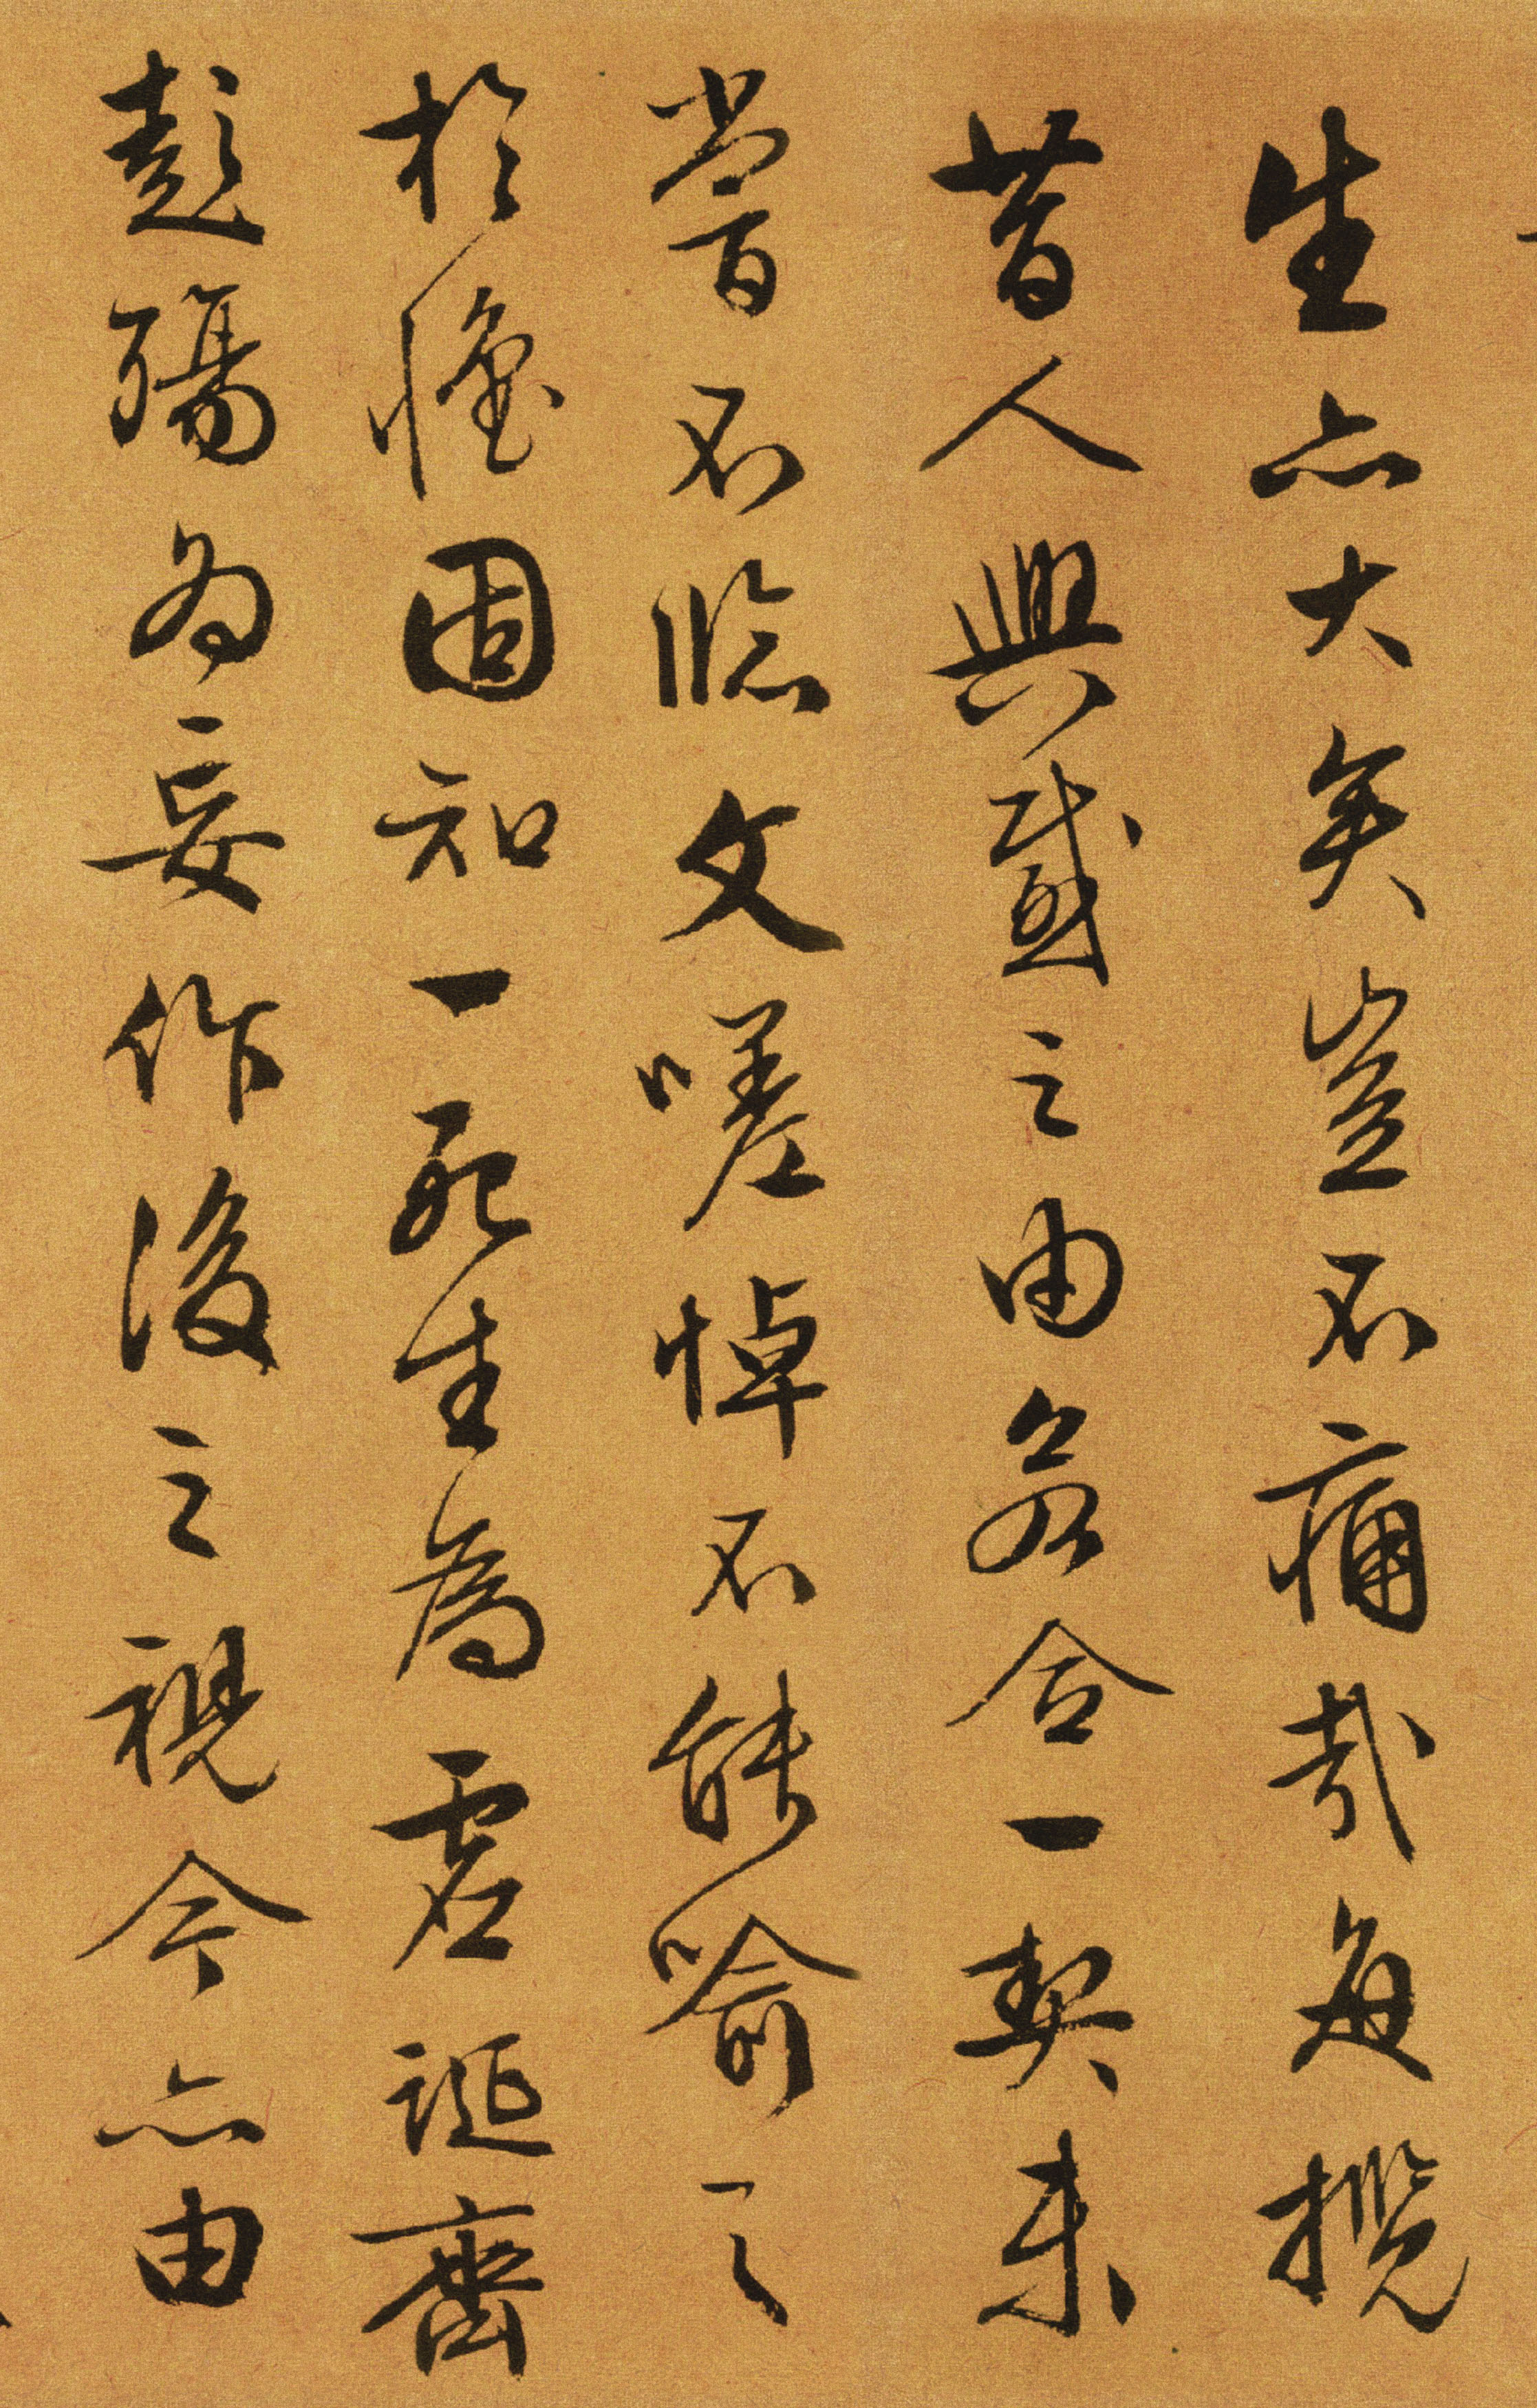 生亦大矣豈不痛哉每攬
昔人興感之由若合一契未
嘗不臨文嗟悼不能喻之
於懷固知一死生為虛誕齊
彭殤為妄作後之視今亦由